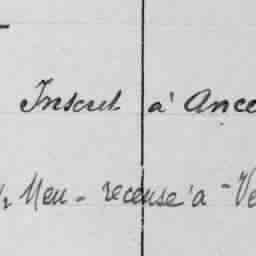 Inscrit à Ance
Meu - recensé a - Ve